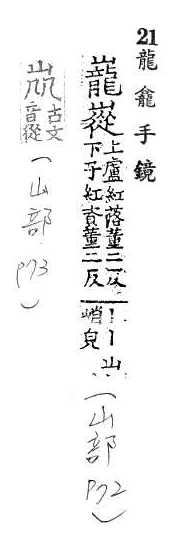 21龍龕手鏡
巃嵸上盧紅落董二反下子紅資董二反丨丨山峭皃(山部P72)
古文音從(山部P73)